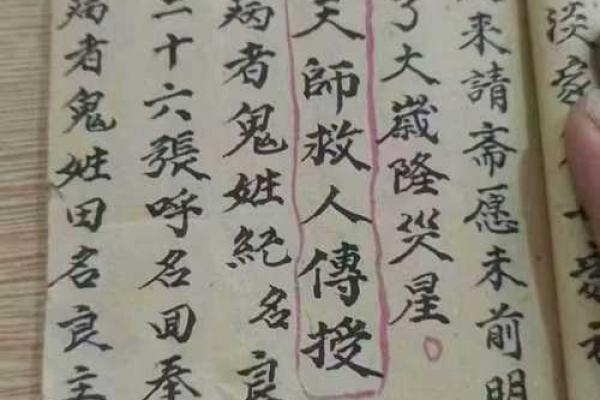 来請斎愿未前明
了大嵗隆災星
天師救人傳授
病者鬼姓紀名良
二十六張呼名回奉
病者鬼姓田名良主